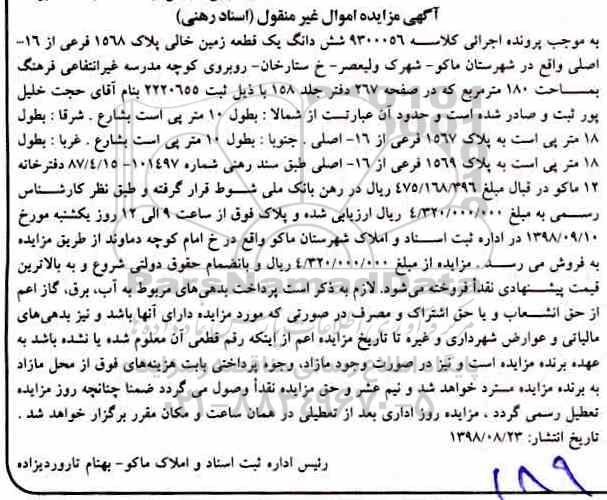 آگهی مزایده اموال غیر منقول (اسناد رهنی)
به موجب پرونده اجرائی کلاسه ۹۳۰۰۰۵۶ شش دانگ یک قطعه زمین خالی پلاک ۱۵۶۸ فرعی از ۱۶-
اصلی واقع در شهرستان ماکو- شهرک ولیعصر- خ ستارخان- روبروی کوچه مدرسه غیرانتفاعی فرهنگ
بمساحت ۱۸۰ مترمربع که در صفحه ۲۶۷ دفتر جلد ۱۵۸ با ذیل ثبت ۲۲۲۰۶۵۵ بنام آقای حجت خلیل
پور ثبت و صادر شده است و حدود آن عبارتست از شمالا : بطول ۱۰ متر پی است بشارع . شرقا : بطول
۱۸ متر پی است به پلاک ۱۵۶۷ فرعی از ۱۶- اصلی . جنوبا : بطول ۱۰ متر پی است بشارع . غربا : بطول
۱۸ متر پی است به پلاک ۱۵۶۹ فرعی از ۱۶- اصلی طبق سند رهنی شماره ۱۰۱۴۹۷- ۸۷/۴/۱۵ دفترخانه
۱۲ ماکو در قبال مبلغ ۴۷۵/۱۶۸/۳۹۶ ریال در رهن بانک ملی شوط قرار گرفته و طبق نظر کارشناس
رسمی به مبلغ ۴/۳۲۰/۰۰۰/۰۰۰ ریال ارزیابی شده و پلاک فوق از ساعت ۹ الی ۱۲ روز یکشنبه مورخ
۱۳۹۸/۰۹/۱۰ در اداره ثبت اسناد و املاک شهرستان ماکو واقع در خ امام کوچه دماوند از طریق مزایده
به فروش می رسد . مزایده از مبلغ ۴/۳۲۰/۰۰۰/۰۰۰ ریال و بانضمام حقوق دولتی شروع و به بالاترین
قیمت پیشنهادی نقداً فروخته می‌شود. لازم به ذکر است پرداخت بدهی‌های مربوط به آب، برق، گاز اعم
از حق انشعاب و یا حق اشتراک و مصرف در صورتی که مورد مزایده دارای آنها باشد و نیز بدهی‌های
مالیاتی و عوارض شهرداری و غیره تا تاریخ مزایده اعم از اینکه رقم قطعی آن معلوم شده یا نشده باشد به
عهده برنده مزایده است و نیز در صورت وجود مازاد، وجوه پرداختی بابت هزینه‌های فوق از محل مازاد
به برنده مزایده مسترد خواهد شد و نیم عشر و حق مزایده نقداً وصول می گردد ضمنا چنانچه روز مزایده
تعطیل رسمی گردد ، مزایده روز اداری بعد از تعطیلی در همان ساعت و مکان مقرر برگزار خواهد شد .
تاریخ انتشار: ۱۳۹۸/۰۸/۲۳
رئیس اداره ثبت اسناد و املاک ماکو- بهنام تاروردیزاده
۱۸۹
ParsNamadData
۰۲۱-۸۸۳۴۹۶۷۰-۵